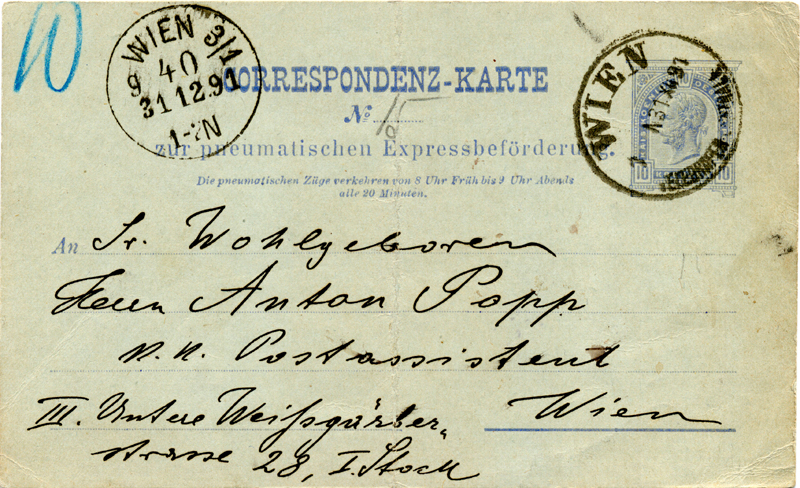 10
WIEN 3/1
9 40
31 12.91
1-2N
CORRESPONDENZ-KARTE
WIEN
№ 15
zur pneumatischen Expressbeförderung.
10 10
Die pneumatischen Züge verkehren von 8 Uhr Früh bis 9 Uhr Abends
alle 20 Minuten.
An Sr. Wohlgeboren
Herrn Anton Popp
k. k. Postassistent
III. Untere Weißgärber„ Wien
strasse 28, I. Stock